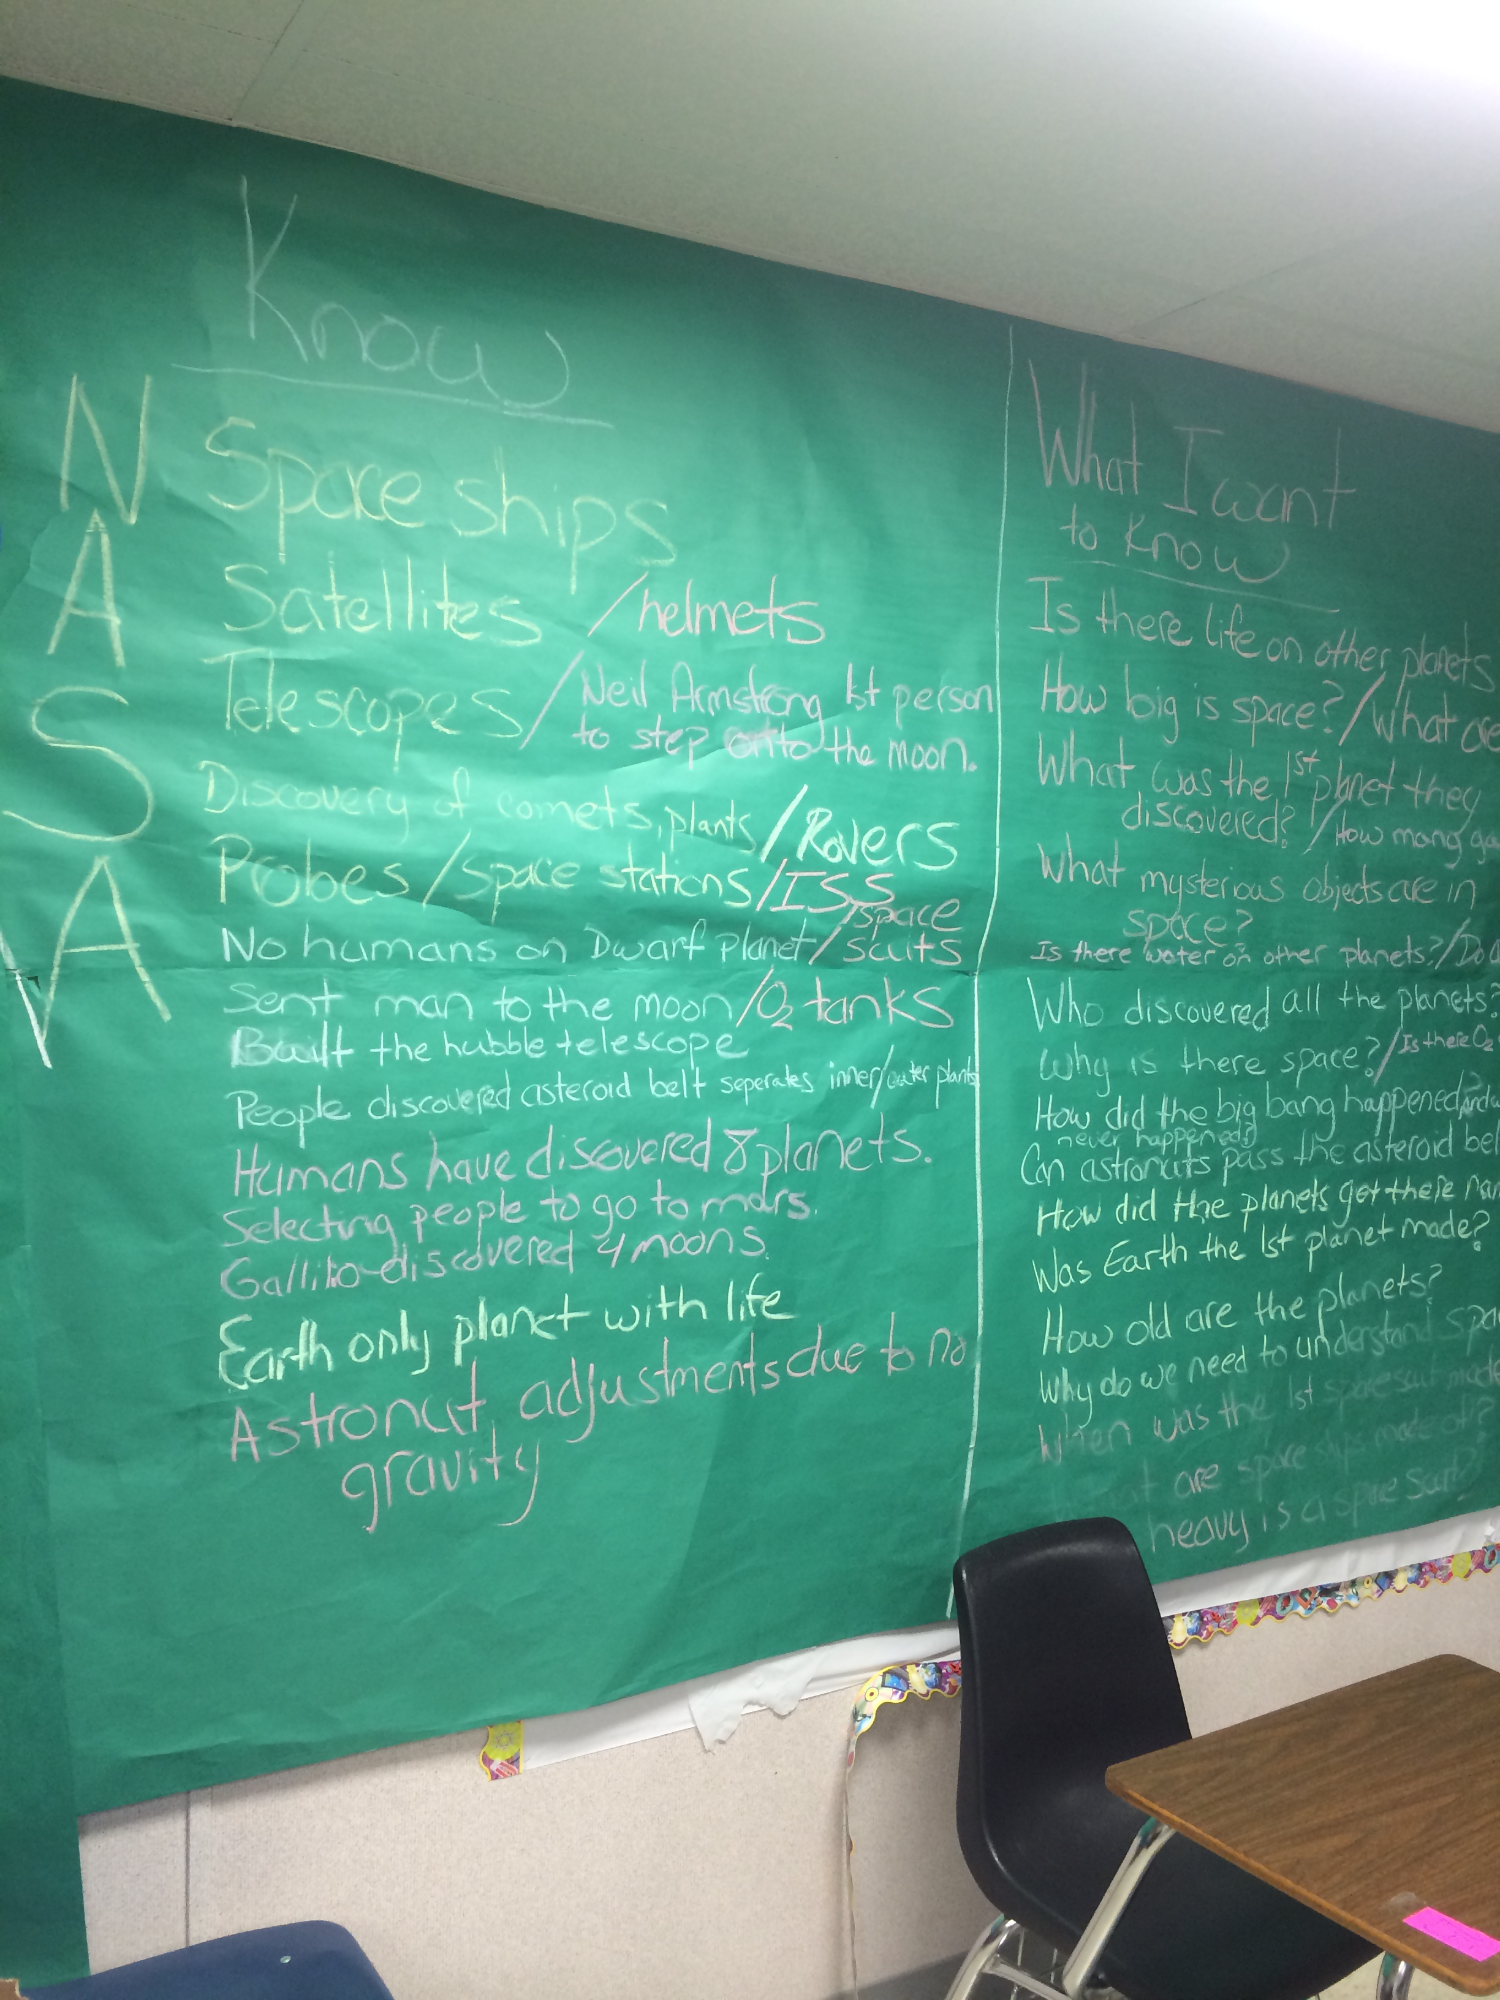 Know
NASA
Space ships
Satellites /helmets
Telescopes / Neil Armstrong 1st person
to step onto the moon.
Discovery of comets, plants /Rovers
Probes /space stations /ISS
No humans on Dwarf planet /space suits
Sent man to the moon /O2 tanks
Built the hubble telescope
People discovered asteroid belt seperates inner/outer plants
Humans have discovered 8 planets.
Selecting people to go to mars.
discovered 4 moons.
Earth only planet with life
Astronaut adjustments due to no
gravity
What I want
to know
Is there life on other planets
How big is space? / What are
What was the 1st planet they
discovered? / How many ga
What mysterious objects are in
space?
Is there water on other planets? / Do
Who discovered all the planets?
Why is there space? / Is there O2
How did the big bang happened?
never happened?
Can astronauts pass the asteroid bel
How did the planets get there na
Was Earth the 1st planet made?
How old are the planets?
Why do we need to understand spa
When was the 1st space suit made
are space ships made of?
heavy is a space suit?